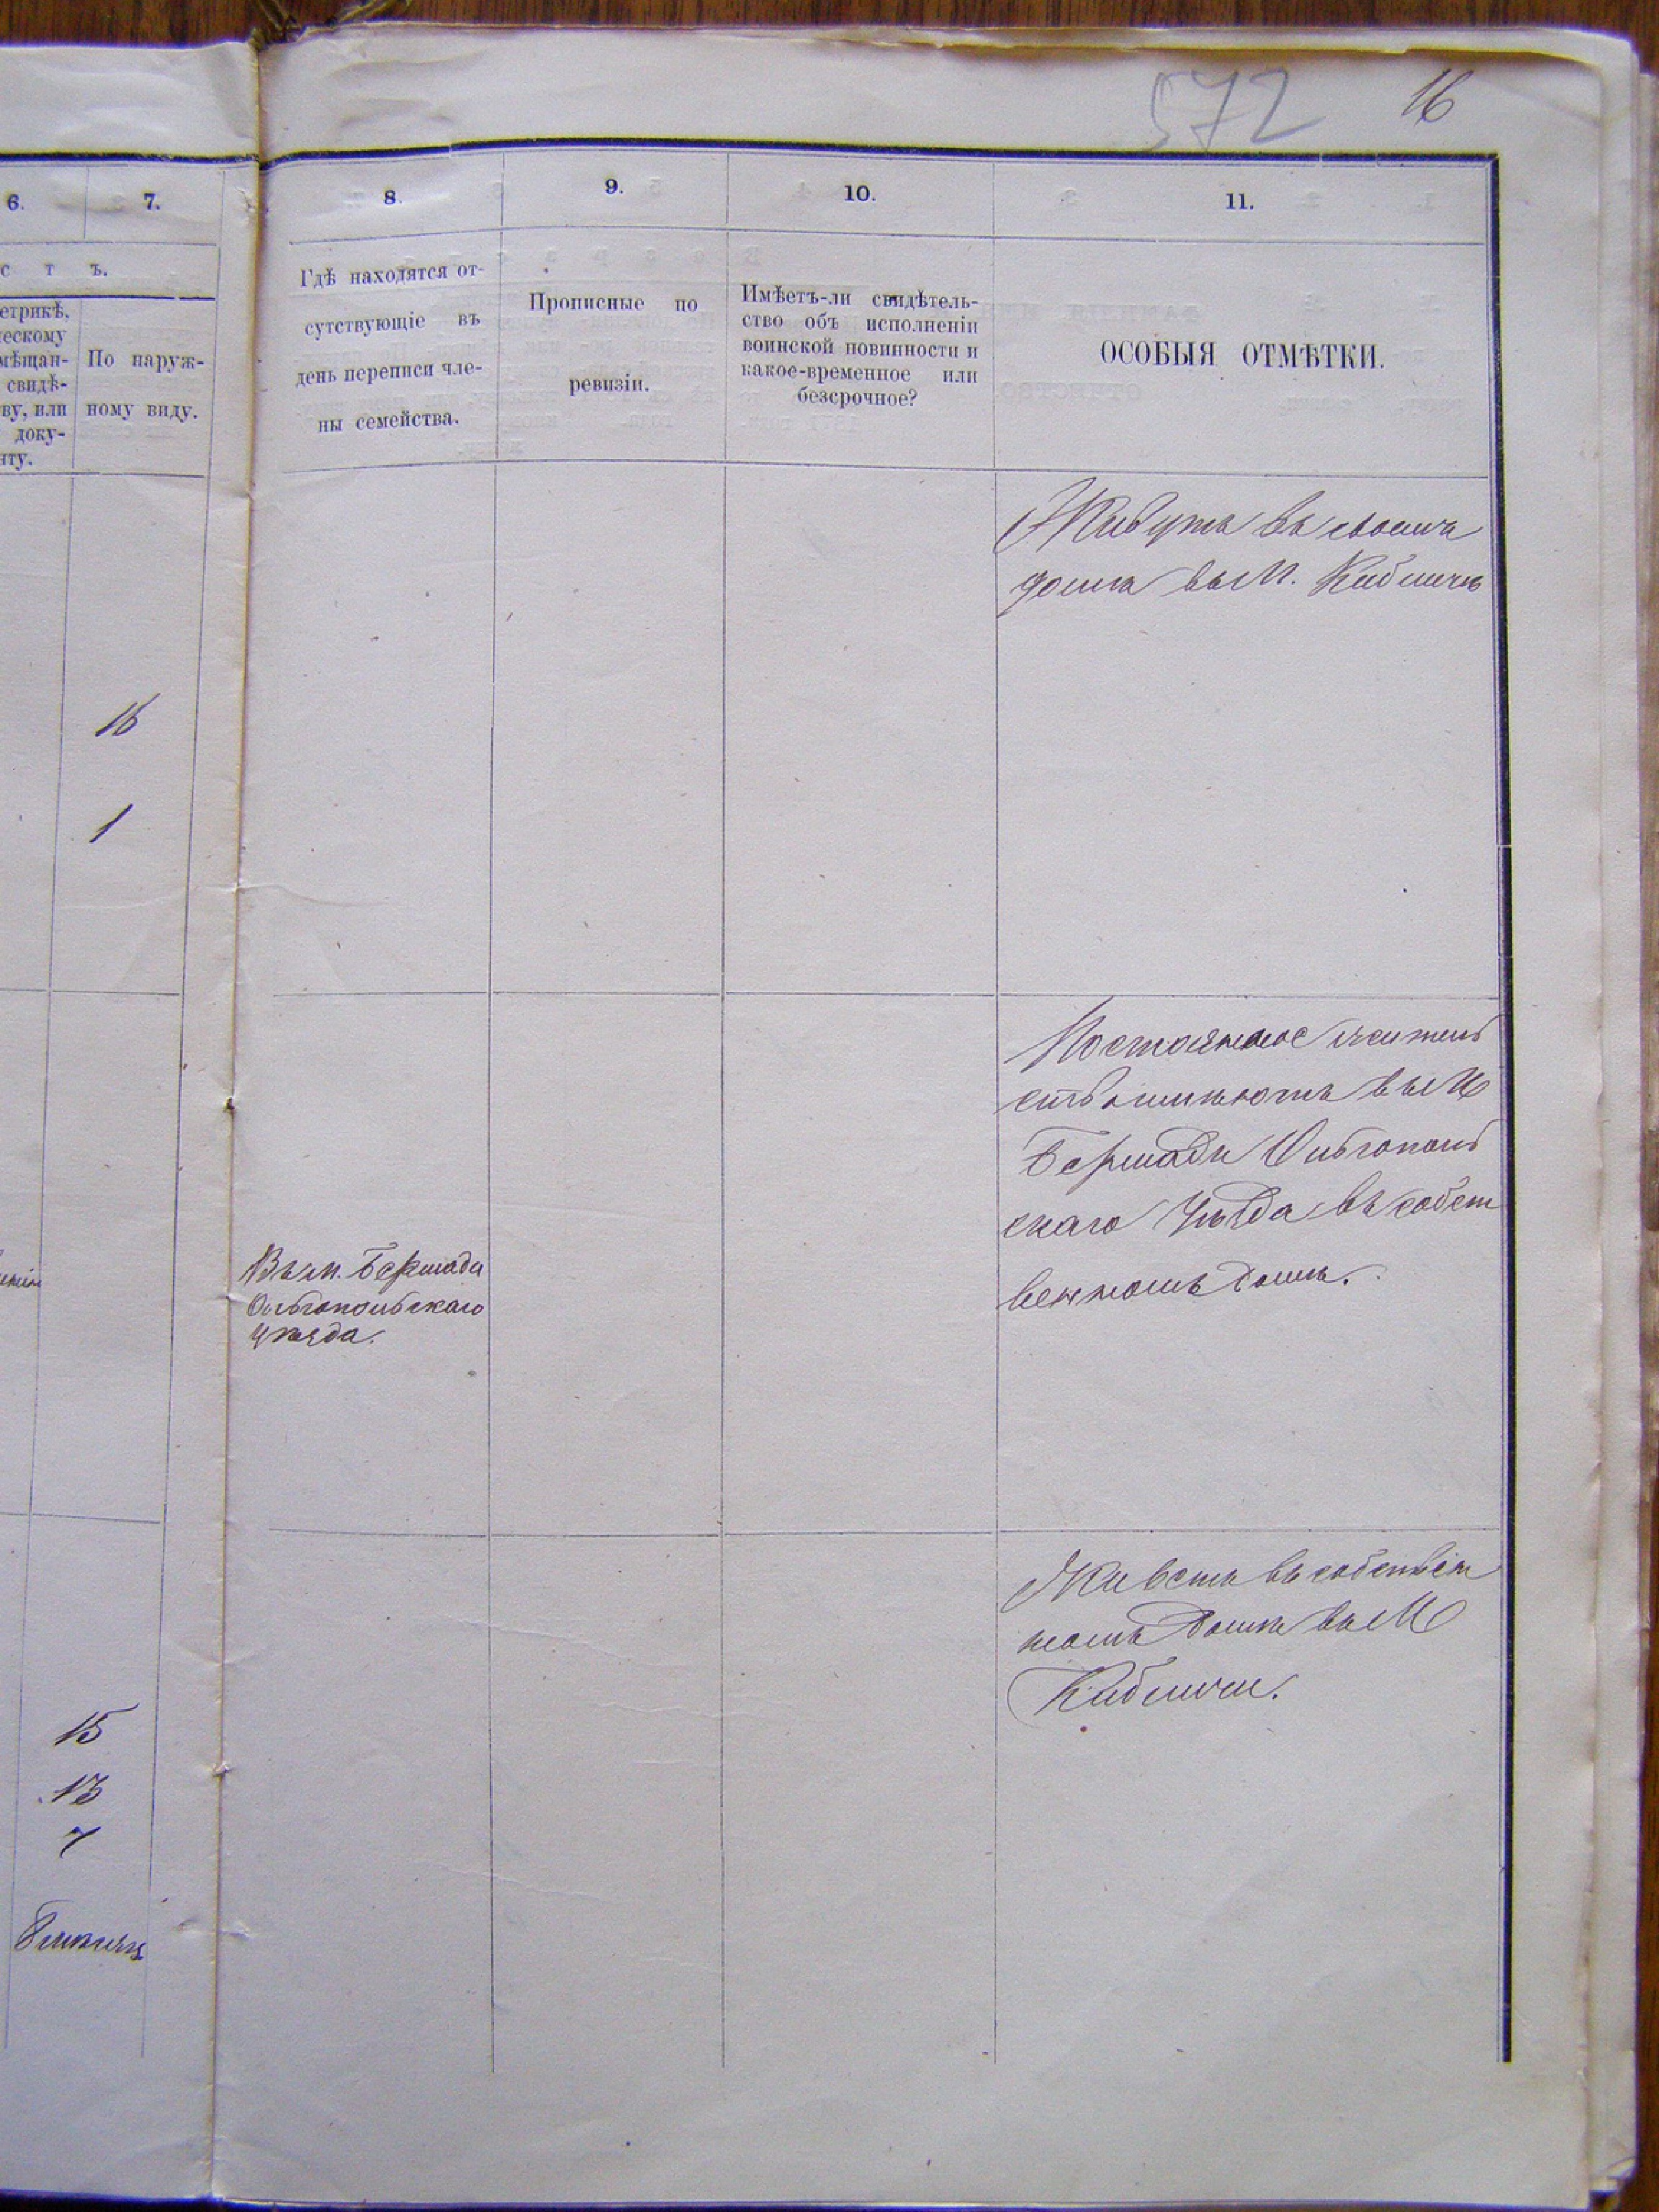 572 16
6. 7. 8. 9. 10. 11.
с т ъ.
етрикѣ,
ческому
мѣщан-
свидѣ-
ву, или
доку-
нту.
По наруж-
ному виду.
Гдѣ находятся от-
сутствующіе въ
день переписи чле-
ны семейства.
Прописные по
ревизіи.
Имѣетъ-ли свидѣтель-
ство объ исполненіи
воинской повинности и
какое-временное или
безсрочное?
ОСОБЫЯ ОТМѢТКИ.
Живутъ въ своемъ
домѣ въ м. Кибличѣ
16
1
Постоянное житель
ство имѣютъ въ м
Бершади Ольгополь
скаго Уѣзда въ собст
венномъ домѣ.
Въ м. Бершади
Ольгопольскаго
уѣзда.
Живетъ въ собствен
номъ домѣ въ М
Кибличи.
15
13
7